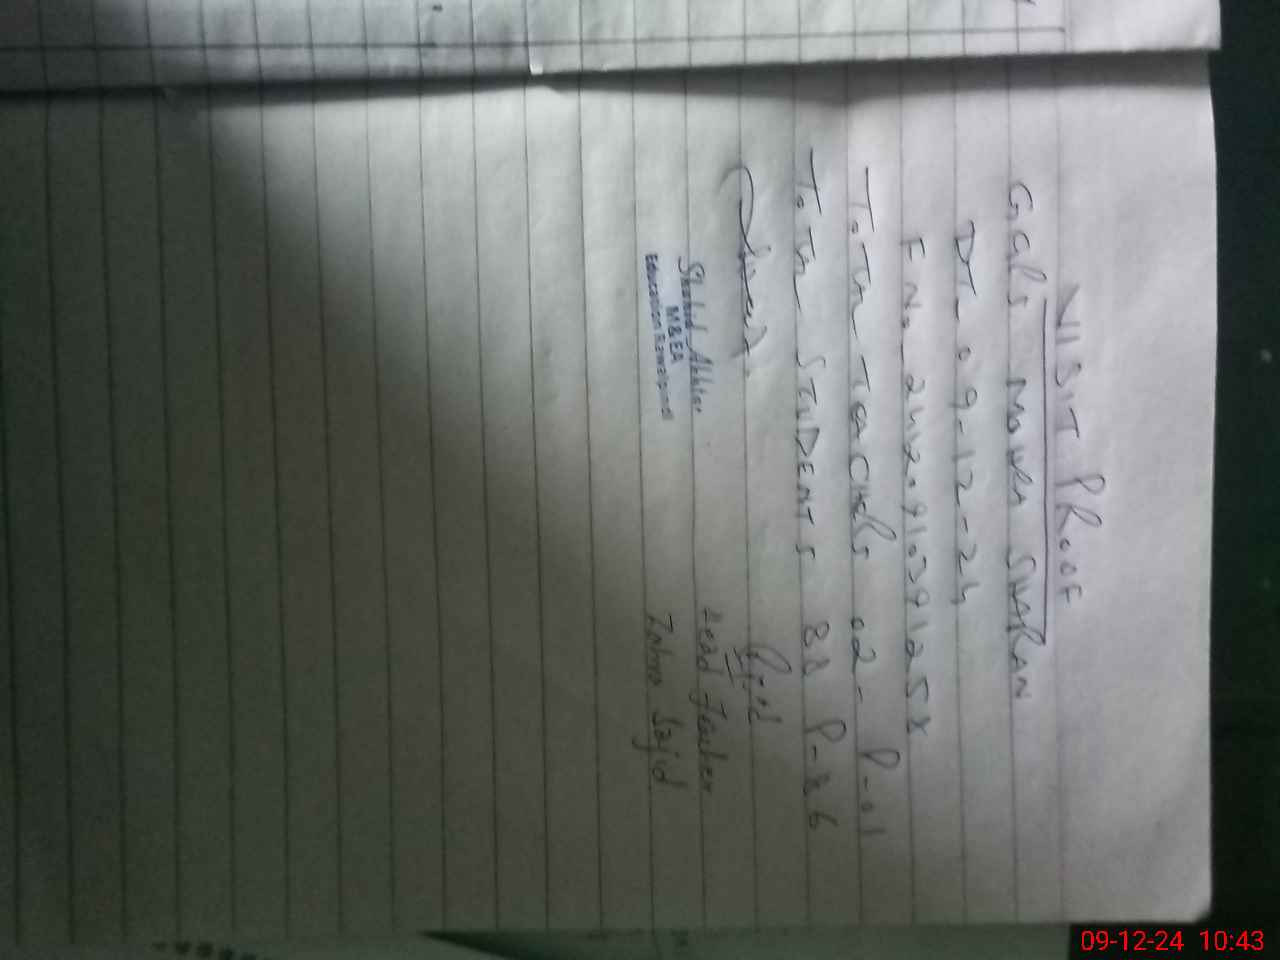 VISIT PROOF
GGPS MOHRA SHARAN
DT- 09-12-24
FNo
TOTAL TEACHERS 02- P-01
TOTAL STUDENTS 88 P-86
Shahid Akhter
M & EA
Education Rawalpindi
Head Teacher
Sajid
09-12-24 10:43